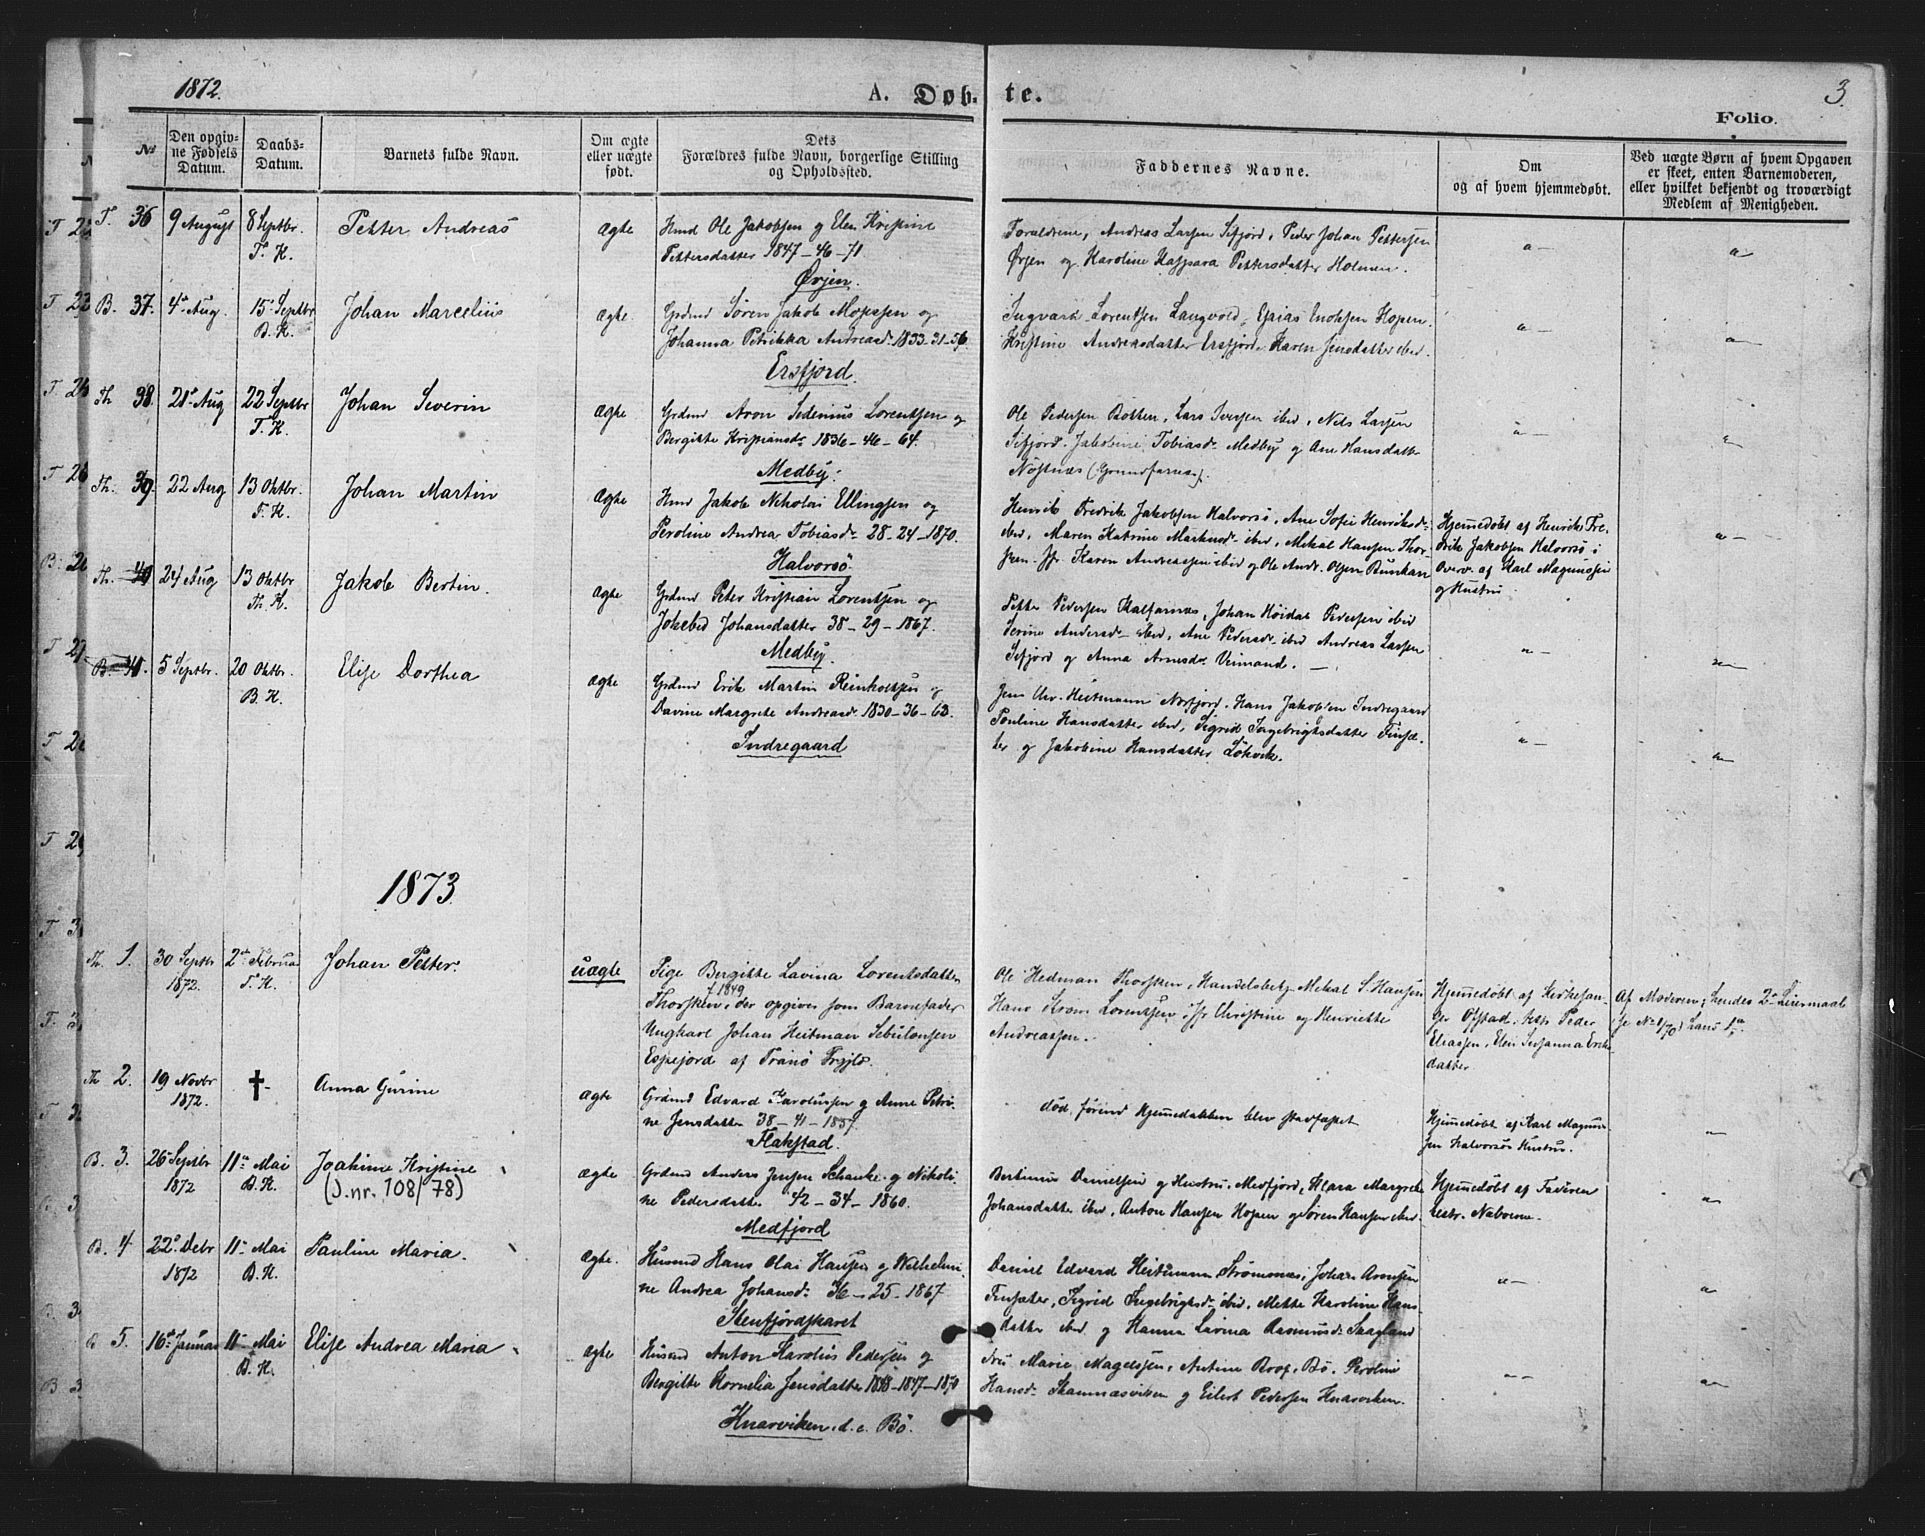 1872.
A. Døb-te.
3.
Folio.
№
Den opgiv-
ne Fødsels
Datum.
Daabs-
Datum.
Barnets fulde Navn.
Om ægte
eller uægte
født.
Dets
Forældres fulde Navn, borgerlige Stilling
og Opholdssted.
Faddernes Navne.
Om
og af hvem hjemmedøbt.
Ved uægte Børn af hvem Opgaven
er skeet, enten Barnemoderen,
eller hvilket bekjendt og troværdigt
Medlem af Menigheden.
T. 36
9 August
8 Septbr.
T. K.
Petter Andreas
Ægte
Kmd Ole Jakobsen og Elen Kristine
Pettersdatter 1847-46-71
Ørjen.
Forældrene, Andreas Larsen Sifjord, Peder Johan Pettersen
Ørjen og Karoline Kaspara Pettersdatter Holmen.
B. 37.
4de Aug.
15 Septbr
B. K.
Johan Marcelius
Ægte.
Grdmd Søren Jakob Mosessen og
Johanna Petrikka Andreasdr 1833-31-56.
Ersfjord.
Ingvard Lorentsen Langvold, Esaias Enoksen Hopen.
Kristine Andreasdatter Ersfjord. Karen Jensdatter ibid.
Th 38.
21de Aug
22 Septbr
T. K.
Johan Severin
Ægte
Grdmd Aron Sedenius Lorentsen og
Bergitte Kristiansdr 1836-46-64.
Medby.
Ole Pedersen Botten, Lars Iversen ibid, Nils Larsen
Sifjord. Jakobine Tobiasdr Medby og Ane Hansdatter
Nøstnæs (Grundfarnæs).
Th. 39.
22 Aug
13 Oktbr.
T. K.
Johan Martin
Ægte
Kmd Jakob Nikolai Ellingsen og
Peroline Andrea Tobiasdr 28-24-1870.
Halvorsø
Henrik Fredrik Jakobsen Halvorsø, Ane Sofie Henriksdr
ibid, Maren Katrine Markusdr ibid, Mikal Hansen Thor-
sken. Jfr. Karen Andreassen ibid og Ole Andr. Olsen Bunkan
Hjemmedøbt af Henrik Fre-
drik Jakobsen Halvorsø i
Overv. af Karl Magnussen
og Hustru
Th. 40
24 Aug
13 Oktbr
Th. K.
Jakob Bertin.
Ægte
Grdmd Peter Kristian Lorentsen og
Jokebed Johansdatter 38-29-1867.
Medby.
Petter Pedersen Kalfarnæs, Johan Höidal Pedersen ibid
Serine Andersdr ibid, Ane Pedersdr ibid Andreas Larsen
Sifjord og Anna Arnesdr Veimand.
B. 41.
5 Septbr.
20 Oktbr.
B. K.
Elise Dorthea
Ægte
Grdmd Erik Martin Reinholtsen og
Davine Margrete Andreasdr 1830-36-63.
Indregaard
Jens Chr. Heitmann Norfjord. Hans Jakobsen Indregaard
Pouline Hansdatter ibid, Sigrid Ingebrigtsdatter Finsæ-
ter og Jakobine Hansdatter Løkvik.
1873.
Th. 1.
30 Septbr
1872.
2den Februar
T. K.
Johan Petter.
uægte
Pige Bergitte Lavina Lorentsdatter
f 1849
Thorsken, der opgiver som Barnefader
Ungkarl Johan Heitman Sebulonsen
Espejord af Tranø Prgjld.
Ole Hedman Thorsken, Handelsbetj. Mikal S. Hansen
Hans Krom Lorentsen, Jfr Christine og Henriette
Andreassen.
Hjemmedøbt af Kirkesan-
ger Ofstad,
Peder
Eliassen, Elen Susanna Eriks-
datter
Af Moderen; hendes 2det Leiermaal
(se No 1/70) hans 1ste.
Th 2.
19 Novbr
1872.
†
Anna Gurine
Ægte
Grdmd Edvard Karolussen og Anne Petri-
ne Jensdatter 38-41-1857.
Flakstad.
død, förend Hjemmedaaben blev stadfæstet
Hjemmedøbt af Karl Magnus-
sen Halvorsøs Hustru.
B. 3.
26de Septbr
1872
11te Mai
B. K.
Joakime Kristine
(J.nr. 108/78)
Ægte
Grdmd Anders Jensen Schanke og Nikoli-
ne Pedersdatter 42-34-1860.
Medfjord
Bertinus Danielsen og Hustru, Medfjord, Klara Margrete
Johansdatter ibid, Anton Hansen Hopen og Søren Hansen ibid.
Hjemmedøbt af Faderen
Naboerne.
B. 4
22de Debr
1872
11te Mai
B. K.
Pauline Maria.
Ægte.
Husmd Hans Olai Hansen og Wilhelmi-
ne Andrea Johansdr 36-25-1867
Stenfjordskaret
Daniel Edvard Heitmann Strömsnæs, Johan Aronsen
Finsæter, Sigrid Ingebrigtsdr ibid, Mette Karoline Hans-
datter ibid og Hanna Lavina Rasmusdr Skagland
B 5.
16de Januar
11te Mai
B. K.
Elise Andrea Maria
Ægte
Husmd Anton Karolus Pedersen og
Bergitte Kornelia Jensdatter 1848-1847-1870
Knarviken. d. e. Bö.
Fru Marie Magelssen, Antine Brox, Bö, Peroline
Hansdr Skamnæsviken og Eilert Pedersen Knarviken.